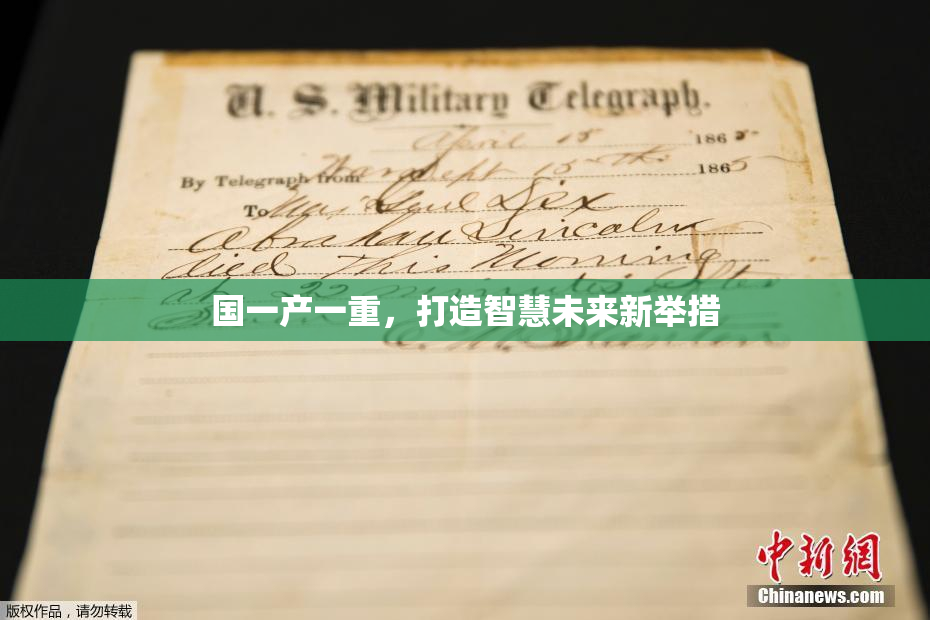 U. S. Military Telegraph.
April 15 1865
By Telegraph from War Dept 15th 1865
To Maj Genl Dix
Abraham Lincoln
died This Morning
at 22 minutes after
国一产一重，打造智慧未来新举措
E. M. Stanton
中新网
Chinanews.com
版权作品，请勿转载